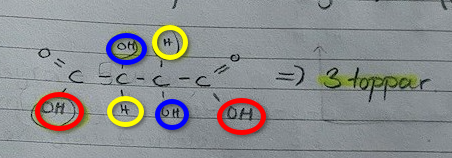 OH H
O O
C - C - C - C => 3 toppar
OH H OH OH